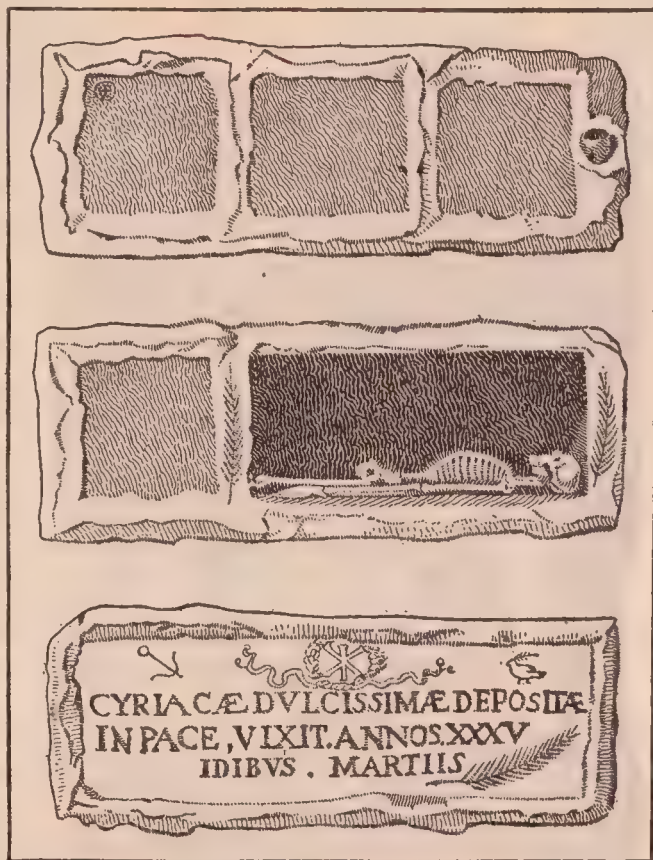 CYRIACÆ.DVLCISSIMÆ.DEPOSITÆ
IN PACE,VIXIT.ANNOS.XXXV
IDIBVS . MARTIIS